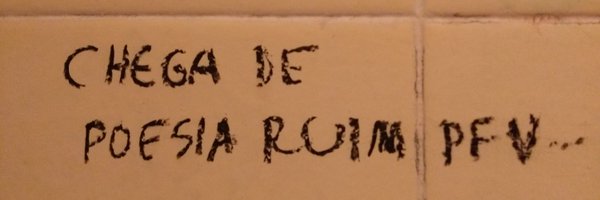 CHEGA DE
POESIA RUIM PFV...